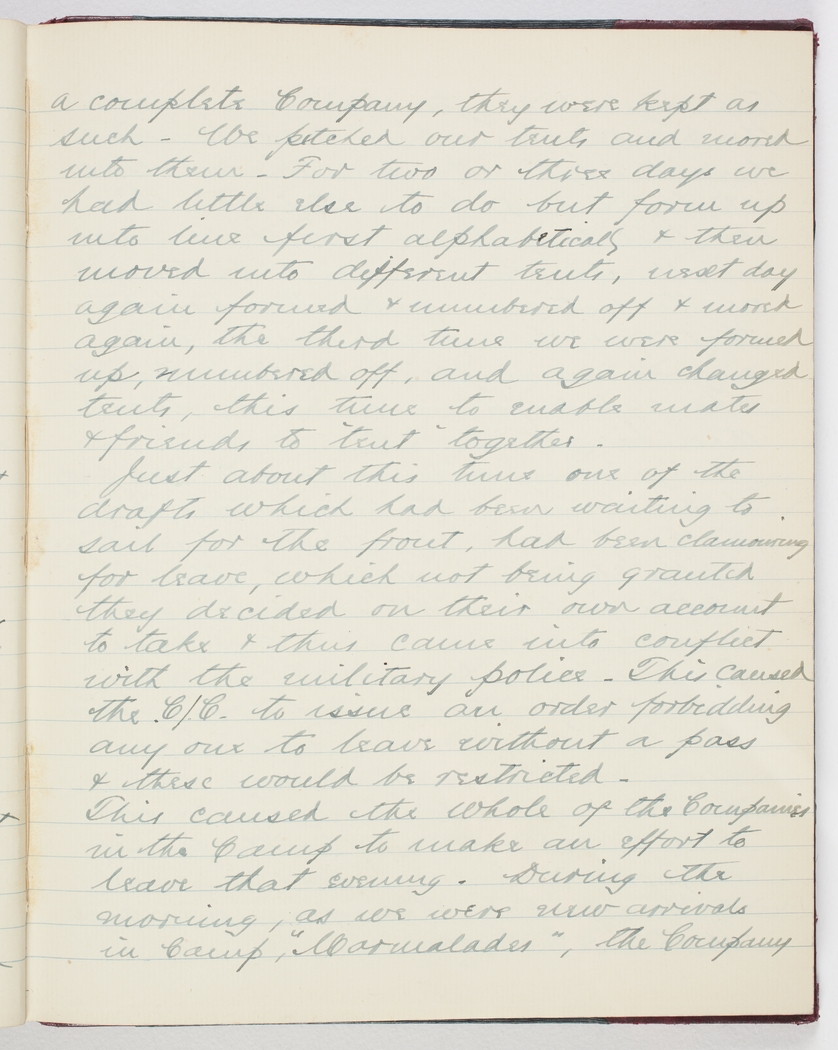 a complete Company, they were kept as
such - We pitched our tents and moved
into them - For two or three days we
had little else to do but form up
into line first alphabetically & then
moved into different tents, next day
again formed & numbered off & moved
again, the third time we were formed
up, numbered off, and again changed
tents, this time to enable mates
& friends to "tent" together.
Just about this time one of the
drafts which had been waiting to
sail for the front, had been clamouring
for leave, which not being granted
they decided on their own account
to take & thus came into conflict
with the military police - This caused
the C/C. to issue an order forbidding
any one to leave without a pass
& these would be restricted -
This caused the whole of the Companies
in the Camp to make an effort to
leave that evening. During the
morning, as we were new arrivals
in Camp, "Marmalades", the Company